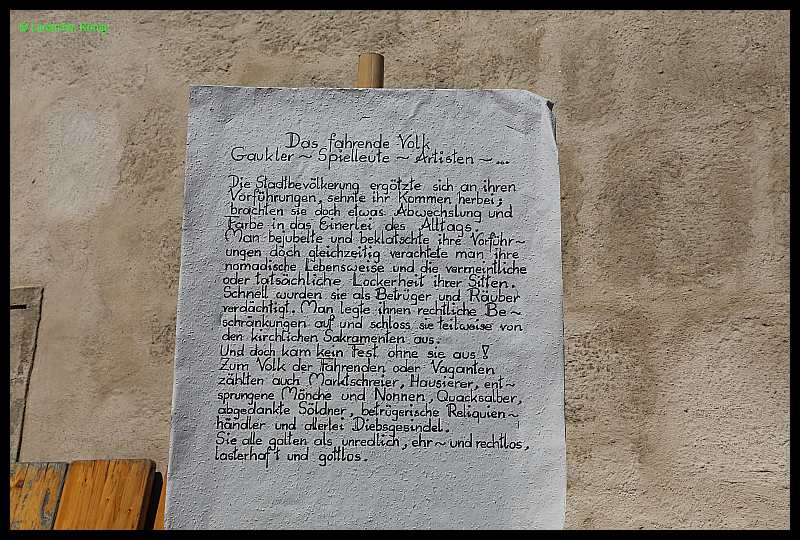 Das fahrende Volk
Gaukler ~ Spielleute ~ Artisten ~ ...
Die Stadtbevölkerung ergötzte sich an ihren
Vorführungen, sehnte ihr Kommen herbei;
brachten sie doch etwas Abwechslung und
Farbe in das Einerlei des Alltags.
Man bejubelte und beklatschte ihre Vorführ~
ungen doch gleichzeitig verachtete man ihre
nomadische Lebensweise und die vermeintliche
oder tatsächliche Lockerheit ihrer Sitten.
Schnell wurden sie als Betrüger und Räuber
verdächtigt. Man legte ihnen rechtliche Be~
schränkungen auf und schloss sie teilweise von
den kirchlichen Sakramenten aus.
Und doch kam kein Fest ohne sie aus!
Zum Volk der Fahrenden oder Vaganten
zählten auch Marktschreier, Hausierer, ent~
sprungene Mönche und Nonnen, Quacksalber,
abgedankte Söldner, betrügerische Reliquien~
händler und allerlei Diebsgesindel.
Sie alle galten als unredlich, ehr~ und rechtlos,
lasterhaft und gottlos.